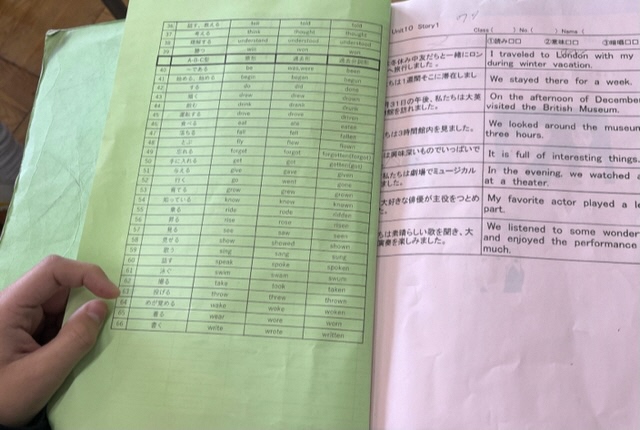 36 話す、教える tell told told
37 考える think thought thought
38 理解する understand understood understood
39 勝つ win won won
A-B-C型 原形 過去形 過去分詞形
40 ～である be was,were been
41 始める、始まる begin began begun
42 する do did done
43 描く draw drew drawn
44 飲む drink drank drunk
45 運転する drive drove driven
46 食べる eat ate eaten
47 落ちる fall fell fallen
48 とぶ fly flew flown
49 忘れる forget forgot forgotten(forgot)
50 手に入れる get got gotten(got)
51 与える give gave given
52 行く go went gone
53 育てる grow grew grown
54 知っている know knew known
55 乗る ride rode ridden
56 昇る rise rose risen
57 見る see saw seen
58 見せる show showed shown
59 歌う sing sang sung
60 話す speak spoke spoken
61 泳ぐ swim swam swum
62 take took taken
63 投げる throw threw thrown
64 めが覚める wake woke woken
65 着る wear wore worn
66 書く write wrote written
Unit10 Story1
Class ( ) No. ( ) Name (
①読み□□ ②意味□□ ③暗唱□□
冬休みや友だちと一緒にロン
へ旅行しました。
I traveled to London with my
during winter vacation.
ちは1週間そこに滞在しまし
We stayed there for a week.
月31日の午後、私たちは大英
館を訪れました。
On the afternoon of Decembe
visited the British Museum.
ちは3時間館内を見ました。
We looked around the museu
three hours.
は興味深いものでいっぱいで
It is full of interesting things.
私たちは劇場でミュージカル
ました。
In the evening, we watched a
at a theater.
大好きな俳優が主役をつとめ
た。
My favorite actor played a le
part.
ちは素晴らしい歌を聞き、大
演奏を楽しみました。
We listened to some wonder
and enjoyed the performance
much.